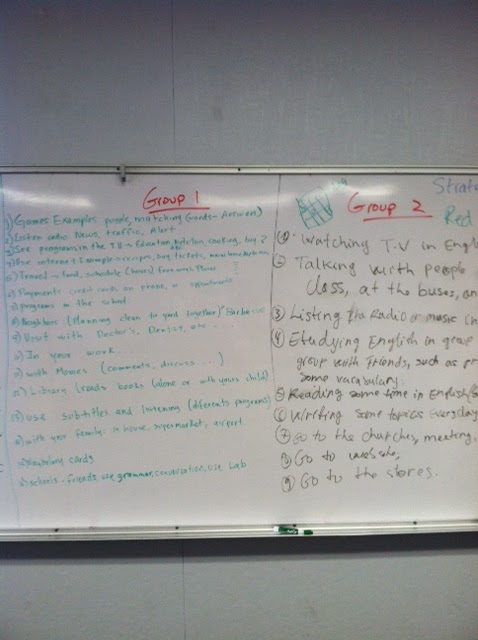 Group 1
1) Games Examples puzzle, matching (words - Answers)
2) Listen radio News, traffic, Alert.
3) See programs in the T.V - Education, Kitchen, cooking, buy
4) Use internet Examples recipes, buy tickets,
5) Travel - food, schedule (hours)
6) Payments credit cards on phone, or
7) programs in the school
8) Neighbors (Planning clean to yard together)
9) Visit with Doctor's, Dentist, etc
10) In your work...
11) with Movies (comments, discuss...)
12) Library (reads books (alone or with your child)
13) use subtitles and listening (diferents programs)
14) with your family: in house, supermarket, airport.
15) Vocabulary cards
16) schools - friends, use grammar, conversation, use Lab
Strate
Group 2
Red
1. Watching T.V in Engl
2 Talking with people
class, at the buses, on
3 Listing the Radio or music in
4 Etudying English in group
group with Friends, such as pr
some vacabulary.
5 Reading some time in English
6 Writing some topics everyday
7 Go to the churches, meeting,
8 Go to
9 Go to the stores.